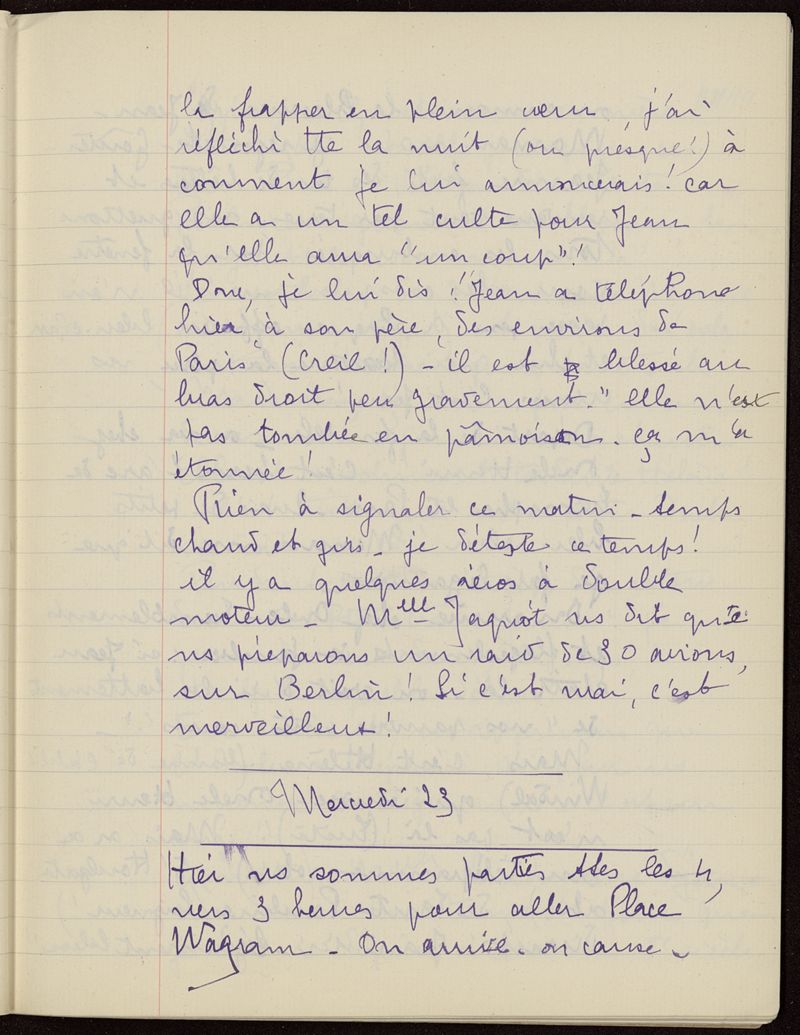 la frapper en plein cœur, j'ai
réfléchi tte la nuit (ou presque !) à
comment je lui annoncerais ! car
elle a un tel culte pour Jean
qu'elle aura "un coup" !
Donc, je lui dis : "Jean a téléphoné
hier, à son père, des environs de
Paris (Creil !) - il est blessé au
bras droit peu gravement." elle n'est
pas tombée en pâmoison. ça m'a
étonnée !
Rien à signaler ce matin - temps
chaud et gris - je déteste ce temps !
il y a quelques aéros à double
moteur - Mlle Jaquot ns dit que
ns préparons un raid de 30 avions,
sur Berlin ! Si c'est vrai, c'est
merveilleux !
Mercredi 23
Hier ns sommes parties ttes les 4,
vers 3 heures pour aller Place
Wagram - On arrive - on cause -